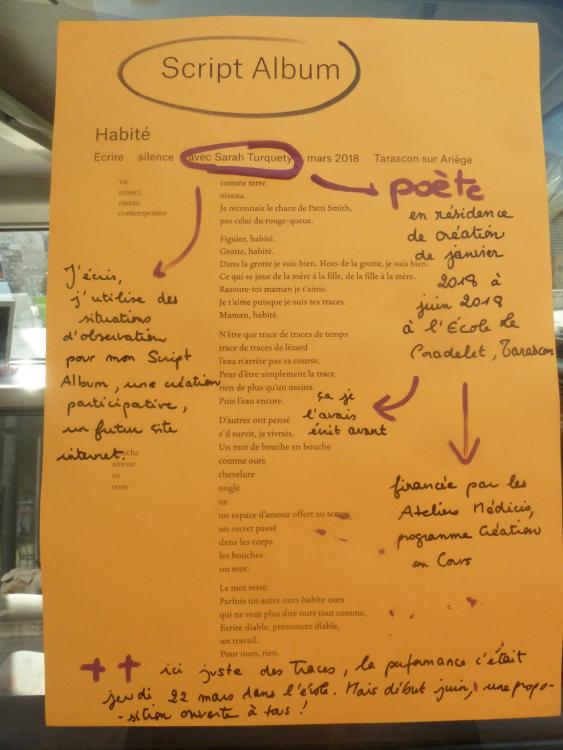 Script Album
Habité
Écrire silence avec Sarah Turquety mars 2018 Tarascon sur Ariège
vie
rétréci
oiseau
contemporain
comme terre
oiseau.
Je reconnais le chant de Patti Smith,
pas celui du rouge-queue.
Figuier, habité.
Grotte, habité.
Dans la grotte je suis bien. Hors de la grotte, je suis bien.
Ce qui se joue de la mère à la fille, de la fille à la mère.
Rassure-toi maman je t'aime.
Je t'aime puisque je suis tes traces.
Maman, habité.
N'être que trace de traces de temps
trace de traces de lézard
l'eau n'arrête pas sa course.
Peur d'être simplement la trace
rien de plus qu'un moins.
Puis l'eau encore.
D'autres ont pensé
s'il survit, je vivrais.
Un mot de bouche en bouche
comme ours
chevelure
ongle
os
un espace d'amour offert au temps
un secret passé
dans les corps
les bouches
un mot.
Le mot reste.
Parfois un autre ours habite ours
qui ne veut plus dire ours tout comme.
Ecrire diable, prononcer diable,
un travail.
Pour ours, rien.
bouche
amour
os
ours
poète
en résidence
de création
de janvier
2018 à
juin 2018
à l'École de
Pradelet, Tarascon
financée par les
Ateliers Médicis,
programme Création
en Cours
J'écris,
j'utilise des
situations
d'observation
pour mon Script
Album, une création
participative,
un futur site
internet.
ça je
l'avais
écrit avant
++ ici juste des Traces, la performance c'était
jeudi 22 mars dans l'école. Mais début juin, une propo-
-sition ouverte à tous !